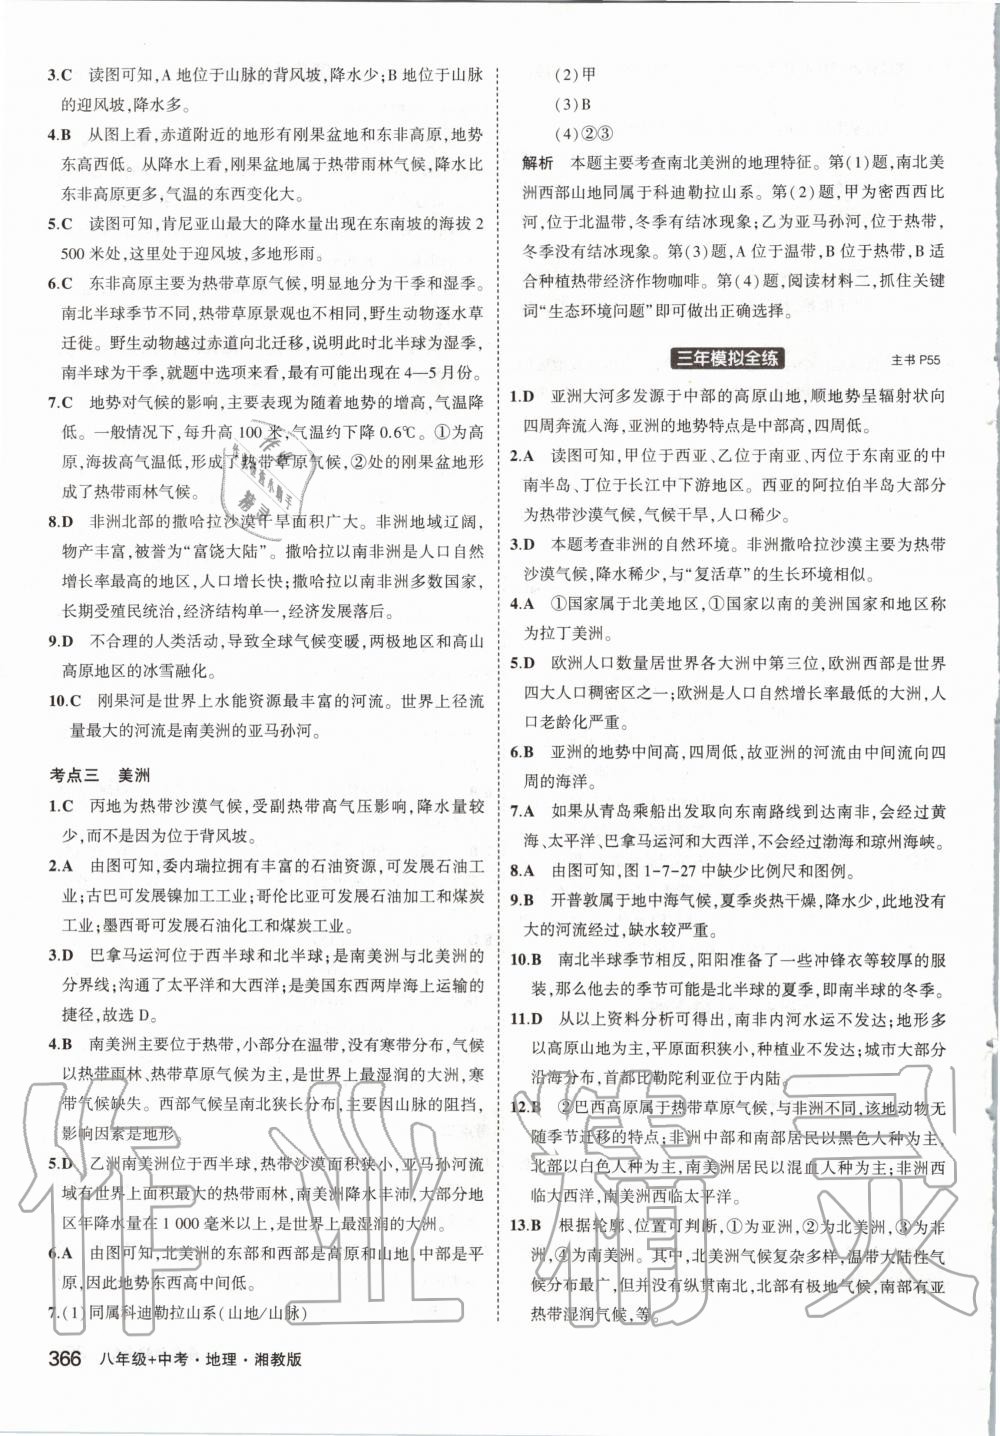 3.C 读图可知,A地位于山脉的背风坡,降水少;B地位于山脉
的迎风坡,降水多。
4.B 从图上看,赤道附近的地形有刚果盆地和东非高原,地势
东高西低。从降水上看,刚果盆地属于热带雨林气候,降水比
东非高原更多,气温的东西变化大。
5.C 读图可知,肯尼亚山最大的降水量出现在东南坡的海拔2
500米处,这里处于迎风坡,多地形雨。
6.C 东非高原主要为热带草原气候,明显地分为干季和湿季。
南北半球季节不同,热带草原景观也不同,野生动物逐水草
迁徙。野生动物越过赤道向北迁移,说明此时北半球为湿季,
南半球为干季,就题中选项来看,最有可能出现在4—5月份。
7.C 地势对气候的影响,主要表现为随着地势的增高,气温降
低。一般情况下,每升高100米,气温约下降0.6℃。①为高
原,海拔高气温低,形成了热带草原气候,②处的刚果盆地形
成了热带雨林气候。
8.D 非洲北部的撒哈拉沙漠干旱面积广大。非洲地域辽阔,
物产丰富,被誉为“富饶大陆”。撒哈拉以南非洲是人口自然
增长最高的地区,人口增长快;撒哈拉以南非洲多数国家,
长期受殖民统治,经济结构单一,经济发展落后。
9.D 不合理的人类活动,导致全球气候变暖,两极地区和高山
高原地区的冰雪融化。
10.C 刚果河是世界上水能资源最丰富的河流。世界上径流
量最大的河流是南美洲的亚马孙河。
考点三 美洲
1.C 丙地为热带沙漠气候,受副热带高气压影响,降水量较
少,而不是因为位于背风坡。
2.A 由图可知,委内瑞拉拥有丰富的石油资源,可发展石油工
业;古巴可发展镍加工工业;哥伦比亚可发展石油加工和煤炭
工业;墨西哥可发展石油化工和煤炭工业。
3.D 巴拿马运河位于西半球和北半球;是南美洲与北美洲的
分界线;沟通了太平洋和大西洋;是美国东西两岸海上运输的
捷径,故选D。
4.B 南美洲主要位于热带,小部分在温带,没有寒带分布,气候
以热带雨林、热带草原气候为主,是世界上最湿润的大洲,寒
带气候缺失。西部气候呈南北狭长分布,主要因山脉的阻挡,
影响因素是地形。
5.D 乙洲南美洲位于西半球,热带沙漠面积狭小,亚马孙河流
域有世界上面积最大的热带雨林,南美洲降水丰沛,大多数地
区年降水量在1 000毫米以上,是世界上最湿润的大洲。
6.A 由图可知,北美洲的东部和西部是高原和山地,中部是平
原,因此地势东西高中间低。
7.(1)同属科迪勒拉山系(山地/山脉)
366 八年级+中考·地理·湘教版
(2)甲
(3)B
(4)②③
解析 本题主要考查南北美洲的地理特征。第(1)题,南北美
洲西部山地同属于科迪勒拉山系。第(2)题,甲为密西西比
河,位于北温带,冬季有结冰现象;乙为亚马孙河,位于热带,
冬季没有结冰现象。第(3)题,A位于温带,B位于热带,B适
合种植热带经济作物咖啡。第(4)题,阅读材料二,抓住关键
词“生态环境问题”即可做出正确选择。
三年模拟全练 主书P55
1.D 亚洲大河多发源于中部的高原山地,顺地势呈辐射状向
四周奔流入海,亚洲的地势特点是中部高,四周低。
2.A 读图可知,甲位于西亚、乙位于南亚、丙位于东南亚的中
南半岛、丁位于长江中下游地区。西亚的阿拉伯半岛大部分
为热带沙漠气候,气候干旱,人口稀少。
3.D 本题考查非洲的自然环境。非洲撒哈拉沙漠主要为热带
沙漠气候,降水稀少,与“复活草”的生长环境相似。
4.A ①国家属于北美地区,①国家以南的美洲国家和地区称
为拉丁美洲。
5.D 欧洲人口数量居世界各大洲中第三位,欧洲西部是世界
四大人口稠密区之一;欧洲是人口自然增长率最低的大洲,人
口老龄化严重。
6.B 亚洲的地势中间高,四周低,故亚洲的河流由中间流向四
周的海洋。
7.A 如果从青岛乘船出发取向东南路线到达南非,会经过黄
海、太平洋、巴拿马运河和大西洋,不会经过渤海和琼州海峡。
8.A 由图可知,图1-7-27中缺少比例尺和图例。
9.B 开普敦属于地中海气候,夏季炎热干燥,降水少,此地没有
大的河流经过,缺水较严重。
10.B 南北半球季节相反,阳阳准备了一些冲锋衣等较厚的服
装,那么他去的季节可能是北半球的夏季,即南半球的冬季。
11.D 从以上资料分析可得出,南非内河水运不发达;地形多
以高原山地为主,平原面积狭小,种植业不发达;城市大部分
沿海分布,首都比勒陀利亚位于内陆。
12.B ②巴西高原属于热带草原气候,与非洲不同,该地动物无
随季节迁移的特点;非洲中部和南部居民以黑色人种为主,
北部以白色人种为主,南美洲居民以混血人种为主;非洲西
临大西洋,南美洲西临太平洋。
13.B 根据轮廓、位置可判断,①为亚洲,②为北美洲,③为非
洲,④为南美洲。其中,北美洲气候复杂多样,温带大陆性气
候分布最广,但并没有纵贯南北,北部有极地气候,南部有亚
热带湿润气候,等。
作业精灵